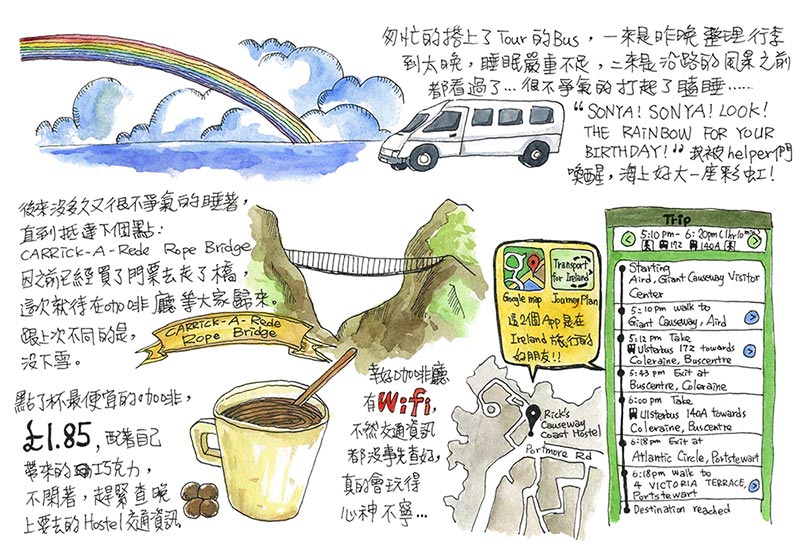 匆忙的搭上了Tour的Bus，一來是昨晚整理行李
到太晚，睡眠嚴重不足，二來是沿路的風景之前
都看過了…很不爭氣的打起了瞌睡……
"SONYA! SONYA! LOOK!
THE RAINBOW FOR YOUR
BIRTHDAY!" 我被helper們
喚醒，海上好大一座彩虹!
後來沒多久又很不爭氣的睡著，
直到抵達下個點：
CARRICK-A-Rede Rope Bridge
因之前已經買了門票去走了橋，
這次就待在咖啡廳等大家歸來。
跟上次不同的是，
沒下雪。
CARRICK-A-Rede
Rope Bridge
點了杯最便宜的咖啡，
£1.85，配著自己
帶來的巧克力，
不閒著，趕緊查晚
上要去的Hostel交通資訊
幸好咖啡廳
有Wifi，
不然交通資訊
都沒事先查好，
真的會玩得
心神不寧…
Transport
for Ireland
Google map
Journey Plan
這2個App是在
Ireland旅行的
好朋友!!
Rick's
Causeway
Coast Hostel
Portmore Rd
Trip
5:10pm- 6:20pm (1hr10mins)
172 140A
Starting
Aird, Giant Causeway Visitor
Center
5:10pm walk to
Giant Causeway, Aird
5:12pm Take
Ulsterbus 172 towards
Coleraine, Buscentre
5:43pm Exit at
Buscentre, Coleraine
6:00pm Take
Ulsterbus 140A towards
Coleraine, Buscentre
6:18pm Exit at
Atlantic Circle, Portstewart
6:18pm walk to
4 VICTORIA TERRACE,
Portstewart
Destination reached